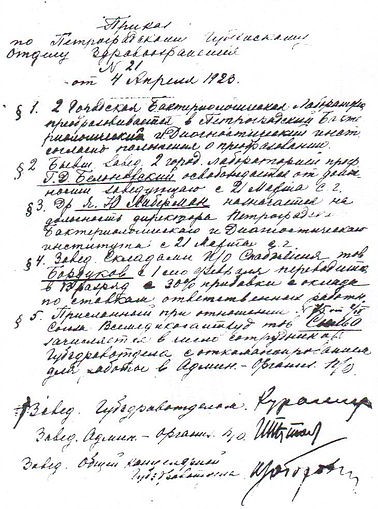 Приказ
по Петроградскому Губернскому
Отделу Здравоохранения
N 21
от 4 Апреля 1923.
§ 1. 2 Городская Бактериологическая Лаборатория
преобразовывается в Петроградский Бакте-
риологический и Диагностический инст.
согласно положения о преобразовании.
§ 2 Бывш. Завед. 2 город. лабораторией проф.
Г.Д. Белоновский освобождается от долж-
ности заведующего с 21 Марта с. г.
§ 3. Др Я. Ю Либерман назначается на
должность директора Петроградского
Бактериологического и Диагностического
института с 21 Марта с. г.
§ 4. Завед Складами П/О Снабжения тов
Бордуков с 1 сего февраля переводится
в разряд с 30% прибавки с оклада
по ставкам ответственных работн.
§ 5. Присланный при отношении
Союза Всемедикосантруд тов
зачисляется в число сотрудников
Губздравотдела с откомандированием
для работы в Админ.- Организ. П/О
Завед. Губздравотделом
Завед. Админ.- Организ. п/о
Завед. Общей канцелярией
Губздравотдела